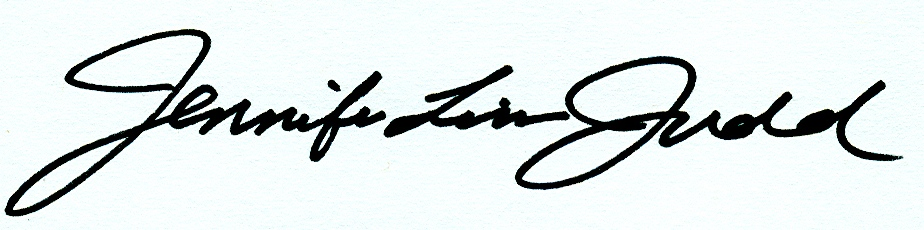 Jennifer Linn Judd